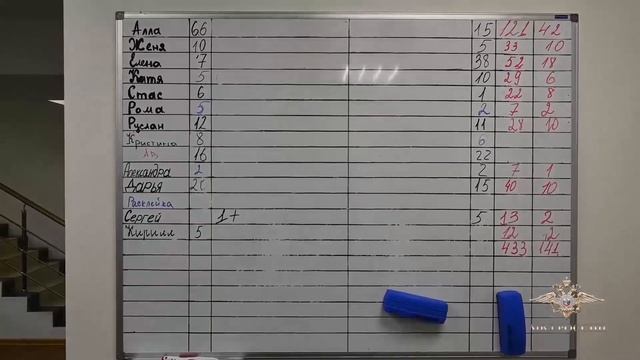 Алла 66 15 121 42
Женя 10 5 33 10
Елена 7 38 52 18
Катя 5 10 29 6
Стас 6 1 22 8
Рома 5 2 7 2
Руслан 12 11 28 10
Кристина 8 6
16 22
Александра 2 2 7 1
Дарья 15 40 10
Расклейка
Сергей 1+ 5 13 2
Кирилл 5 12 2
433 141
МВД РОССИИ